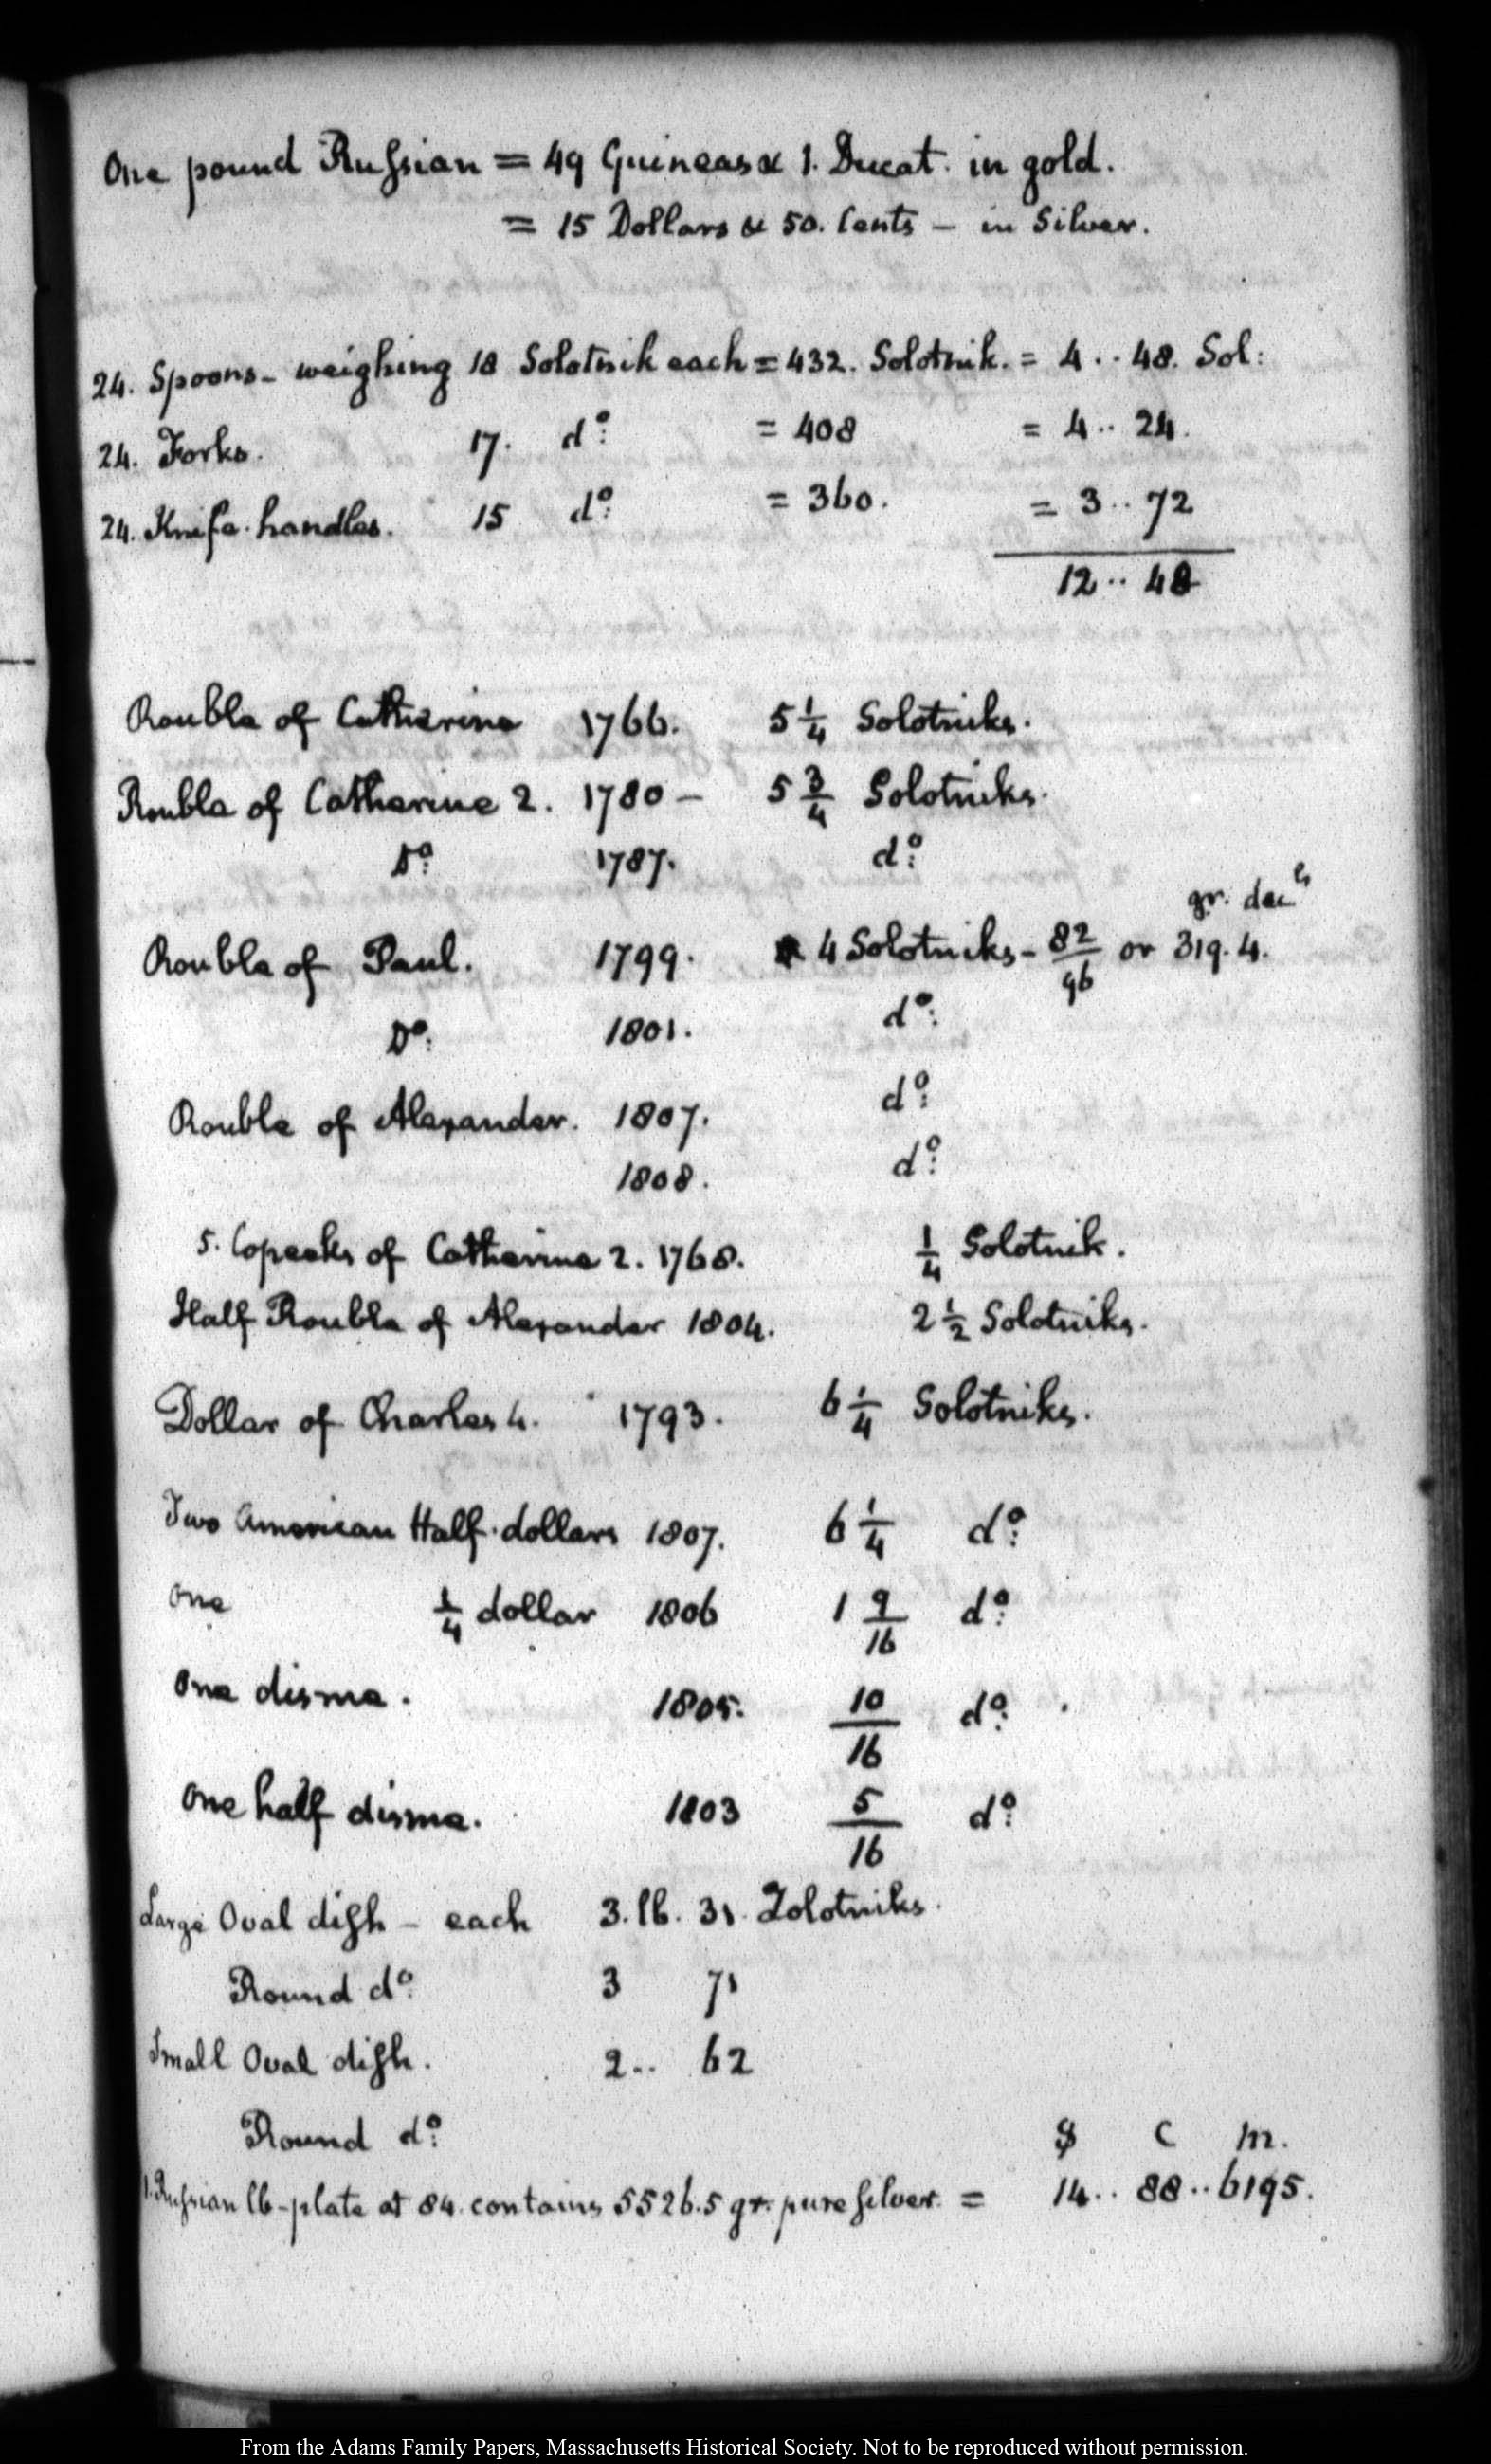 One pound Russian = 49 Guineas & 1. Ducat. in gold.
= 15 Dollars & 50. Cents - in Silver.
24. Spoons - weighing 18 Solotnik each = 432. Solotnik. = 4.. 48. Sol:
24. Forks. 17. do: = 408 = 4.. 24.
24. Knife-handles. 15 do: = 360. = 3.. 72
12.. 48
Rouble of Catherine 1766. 5 1/4 Solotniks.
Rouble of Catherine 2. 1780 - 5 3/4 Solotniks.
Do: 1787. do:
gr. decs
Rouble of Paul. 1799. 4 Solotniks - 82/96 or 319.4.
Do: 1801. do:
Rouble of Alexander. 1807. do:
1808. do:
5. Copecks of Catherine 2. 1768. 1/4 Solotnik.
Half Rouble of Alexander 1804. 2 1/2 Solotniks.
Dollar of Charles 4. 1793. 6 1/4 Solotniks.
Two American Half-dollars 1807. 6 1/4 do:
One 1/4 dollar 1806 1 9/16 do:
One disme. 1805. 10/16 do:
One half disme. 1803 5/16 do:
Large Oval dish - each 3. lb. 31. Zolotniks.
Round do: 3 71
Small Oval dish. 2.. 62
Round do: $ C m.
1. Russian lb - plate at 84. contains 5526.5 gr. pure silver. = 14.. 88.. 6195.
From the Adams Family Papers, Massachusetts Historical Society. Not to be reproduced without permission.